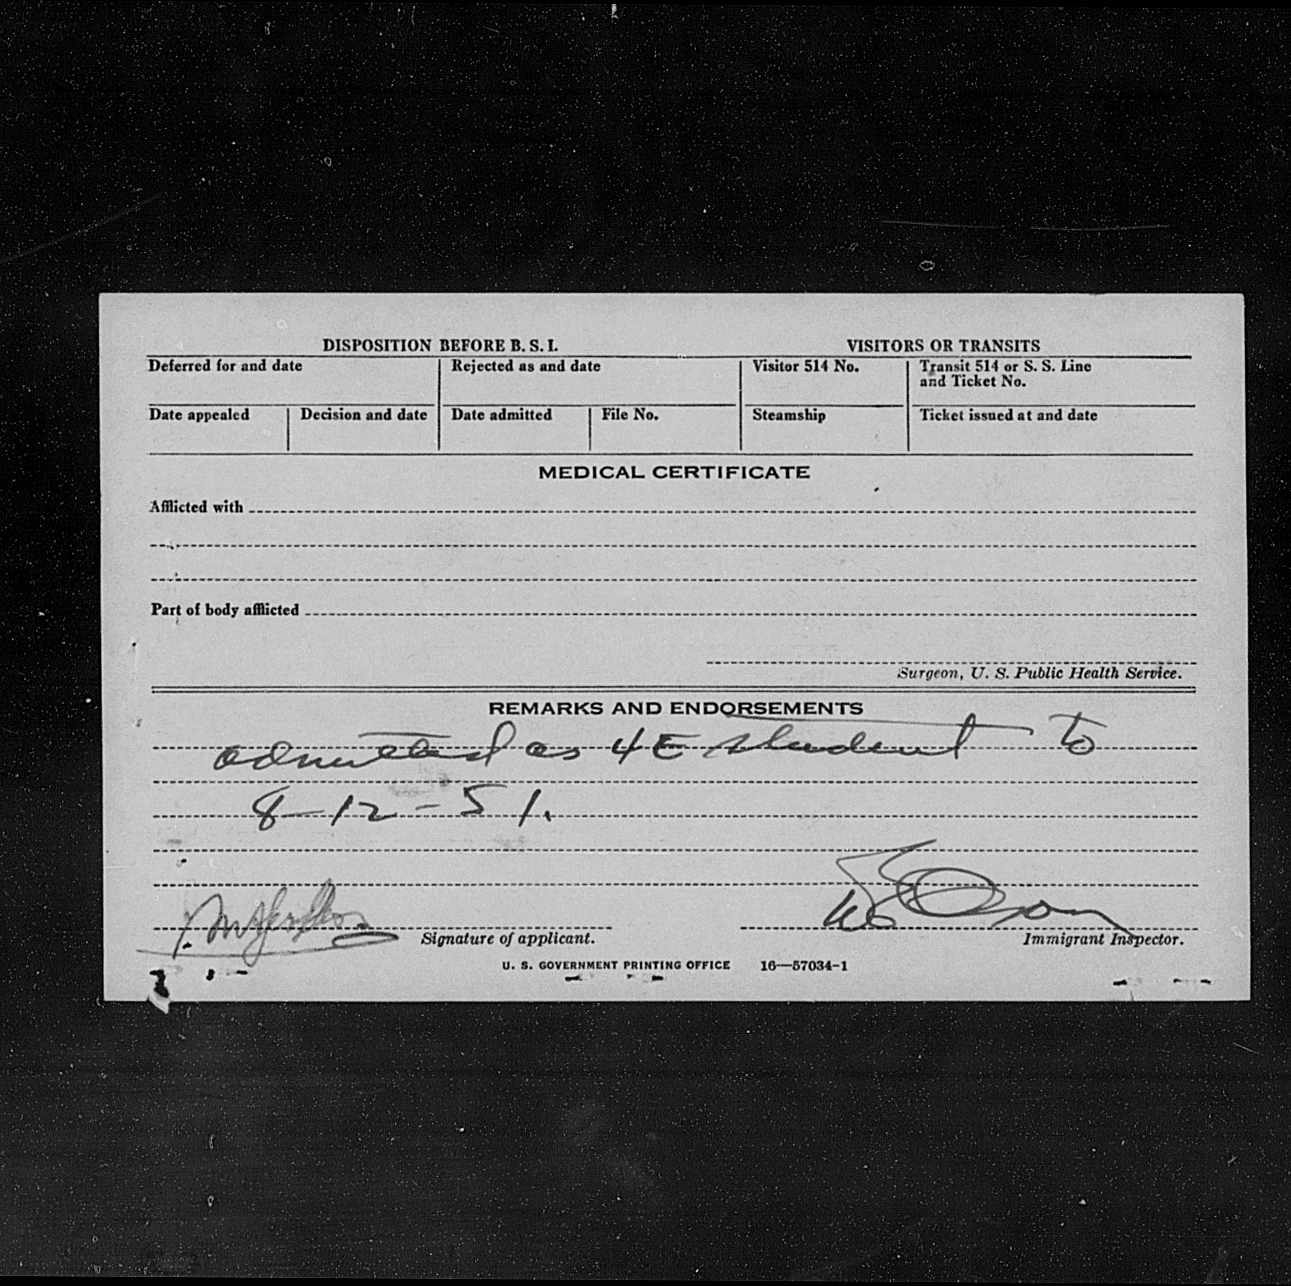 DISPOSITION BEFORE B. S. I.
VISITORS OR TRANSITS
Deferred for and date
Rejected as and date
Visitor 514 No.
Transit 514 or S. S. Line
and Ticket No.
Date appealed
Decision and date
Date admitted
File No.
Steamship
Ticket issued at and date
MEDICAL CERTIFICATE
Afflicted with
Part of body afflicted
Surgeon, U. S. Public Health Service.
REMARKS AND ENDORSEMENTS
admitted as 4E student to
8-12-51.
Signature of applicant.
Immigrant Inspector.
U. S. GOVERNMENT PRINTING OFFICE 16—57034-1